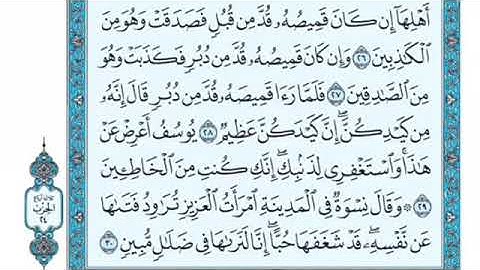 أَهْلِهَا إِن كَانَ قَمِيصُهُۥ قُدَّ مِن قُبُلٍ فَصَدَقَتْ وَهُوَ مِنَ
ٱلْكَٰذِبِينَ ٢٦ وَإِن كَانَ قَمِيصُهُۥ قُدَّ مِن دُبُرٍ فَكَذَبَتْ وَهُوَ
مِنَ ٱلصَّٰدِقِينَ ٢٧ فَلَمَّا رَءَا قَمِيصَهُۥ قُدَّ مِن دُبُرٍ قَالَ إِنَّهُۥ
مِن كَيْدِكُنَّ ۖ إِنَّ كَيْدَكُنَّ عَظِيمٌ ٢٨ يُوسُفُ أَعْرِضْ عَنْ
هَٰذَا ۚ وَٱسْتَغْفِرِى لِذَنۢبِكِ ۖ إِنَّكِ كُنتِ مِنَ ٱلْخَاطِـِٔينَ
٢٩ ۞ وَقَالَ نِسْوَةٌ فِى ٱلْمَدِينَةِ ٱمْرَأَتُ ٱلْعَزِيزِ تُرَٰوِدُ فَتَىٰهَا
عَن نَّفْسِهِۦ ۖ قَدْ شَغَفَهَا حُبًّا ۖ إِنَّا لَنَرَىٰهَا فِى ضَلَٰلٍ مُّبِينٍ ٣٠
الحزب
٢٤